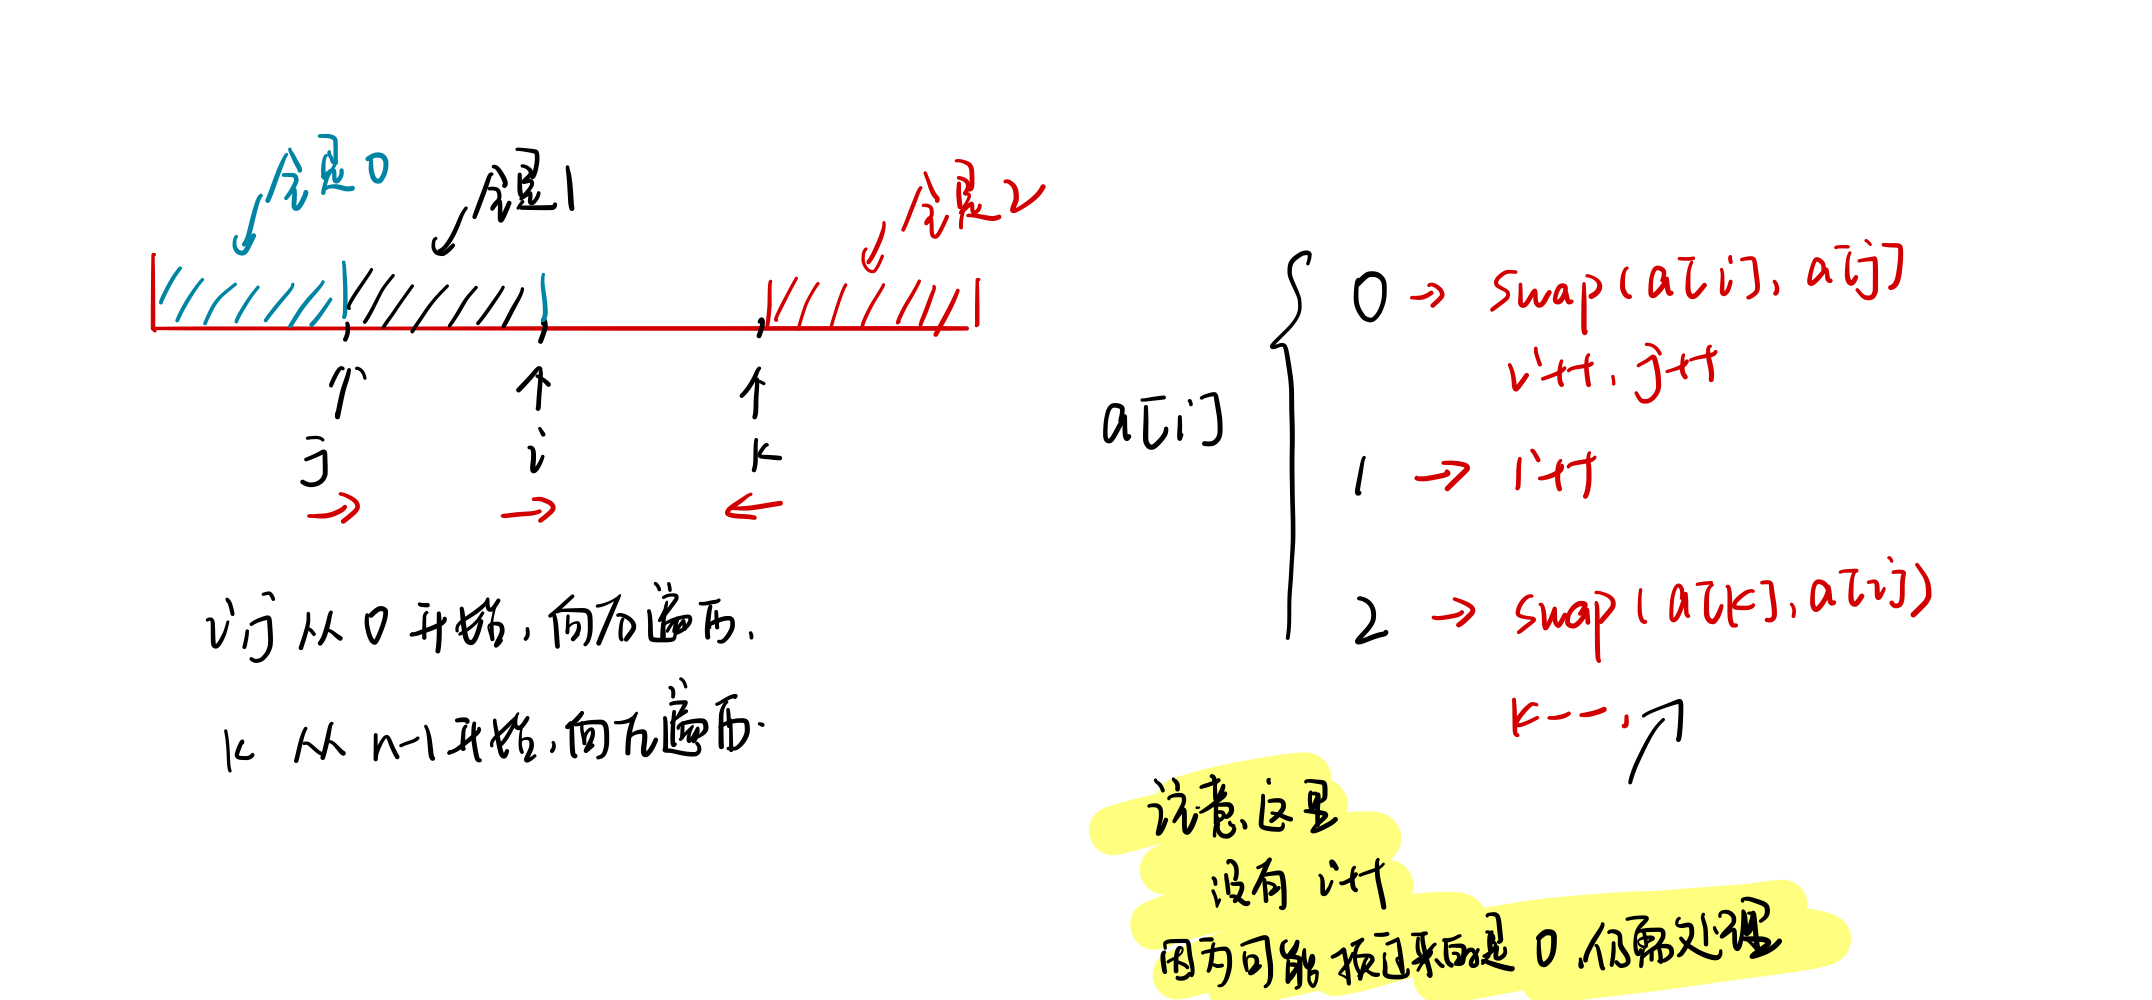 全是0
全是1
全是2
j
i
k
i,j 从 0 开始,向右遍历.
k 从 n-1 开始,向左遍历.
a[i]
0 → swap(a[i], a[j]
i++, j++
1 → i++
2 → swap(a[k], a[i])
k--,
注意这里
没有 i++
因为可能换过来的是 0,仍需处理